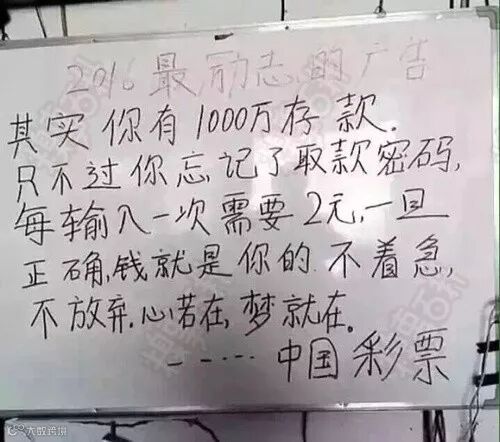 2016最励志的广告
其实你有1000万存款.
只不过你忘记了取款密码,
每输入一次需要2元,一旦
正确,钱就是你的.不着急,
不放弃.心若在,梦就在.
-----中国彩票
大数跨境